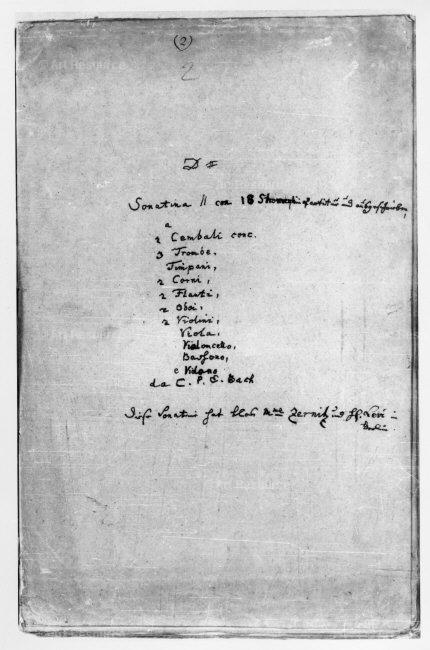 (2)
2
D #
Sonatina II con 18 Stromenti Partitur und ausgeschrieben,
a
2 Cembali conc.
3 Trombe,
Timpani,
2 Corni,
2 Flauti,
2 Oboi,
2 Violini,
Viola,
Violoncello,
Bassono,
e Violono
da C. P. E. Bach
Diese Sonatine hat bloß Zernitz und H. Levi in
Berlin.